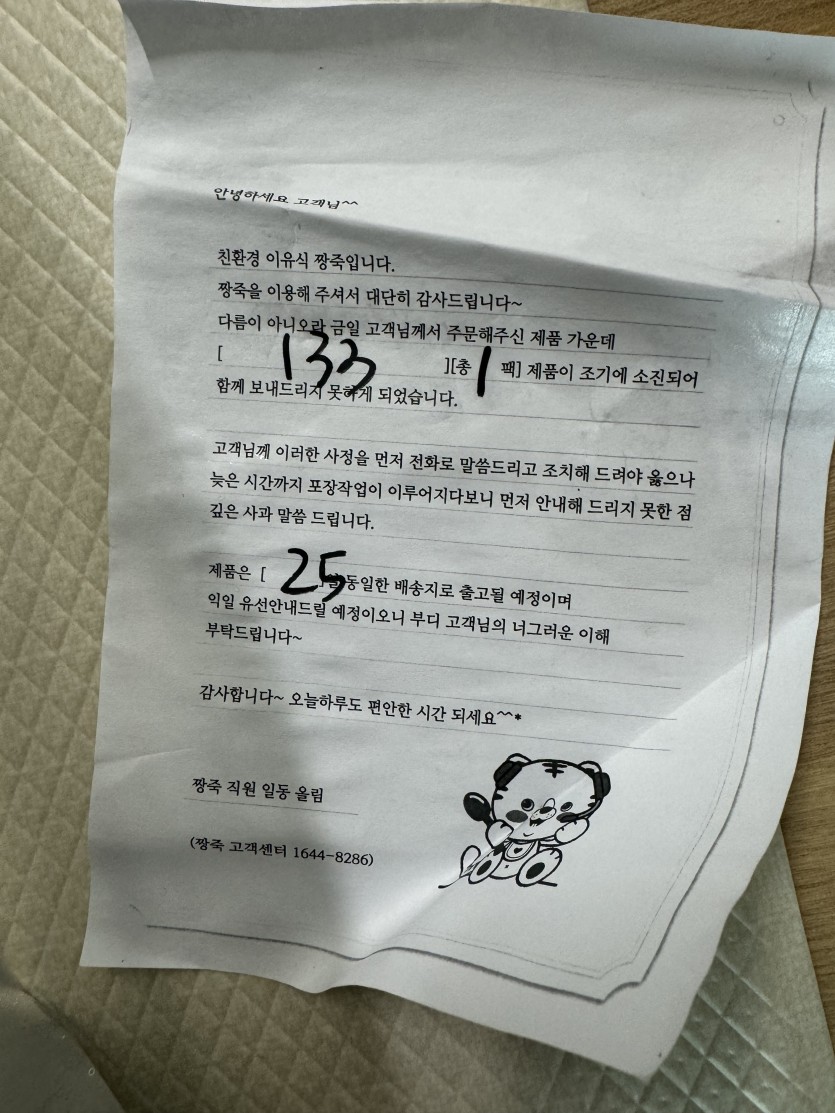 안녕하세요 고객님^^
친환경 이유식 짱죽입니다.
짱죽을 이용해 주셔서 대단히 감사드립니다~
다름이 아니오라 금일 고객님께서 주문해주신 제품 가운데
[ 133 ][총 1 팩] 제품이 조기에 소진되어
함께 보내드리지 못하게 되었습니다.
고객님께 이러한 사정을 먼저 전화로 말씀드리고 조치해 드려야 옳으나
늦은 시간까지 포장작업이 이루어지다보니 먼저 안내해 드리지 못한 점
깊은 사과 말씀 드립니다.
제품은 [ 25 ]일 동일한 배송지로 출고될 예정이며
익일 유선안내드릴 예정이오니 부디 고객님의 너그러운 이해
부탁드립니다~
감사합니다~ 오늘하루도 편안한 시간 되세요^^*
짱죽 직원 일동 올림
(짱죽 고객센터 1644-8286)